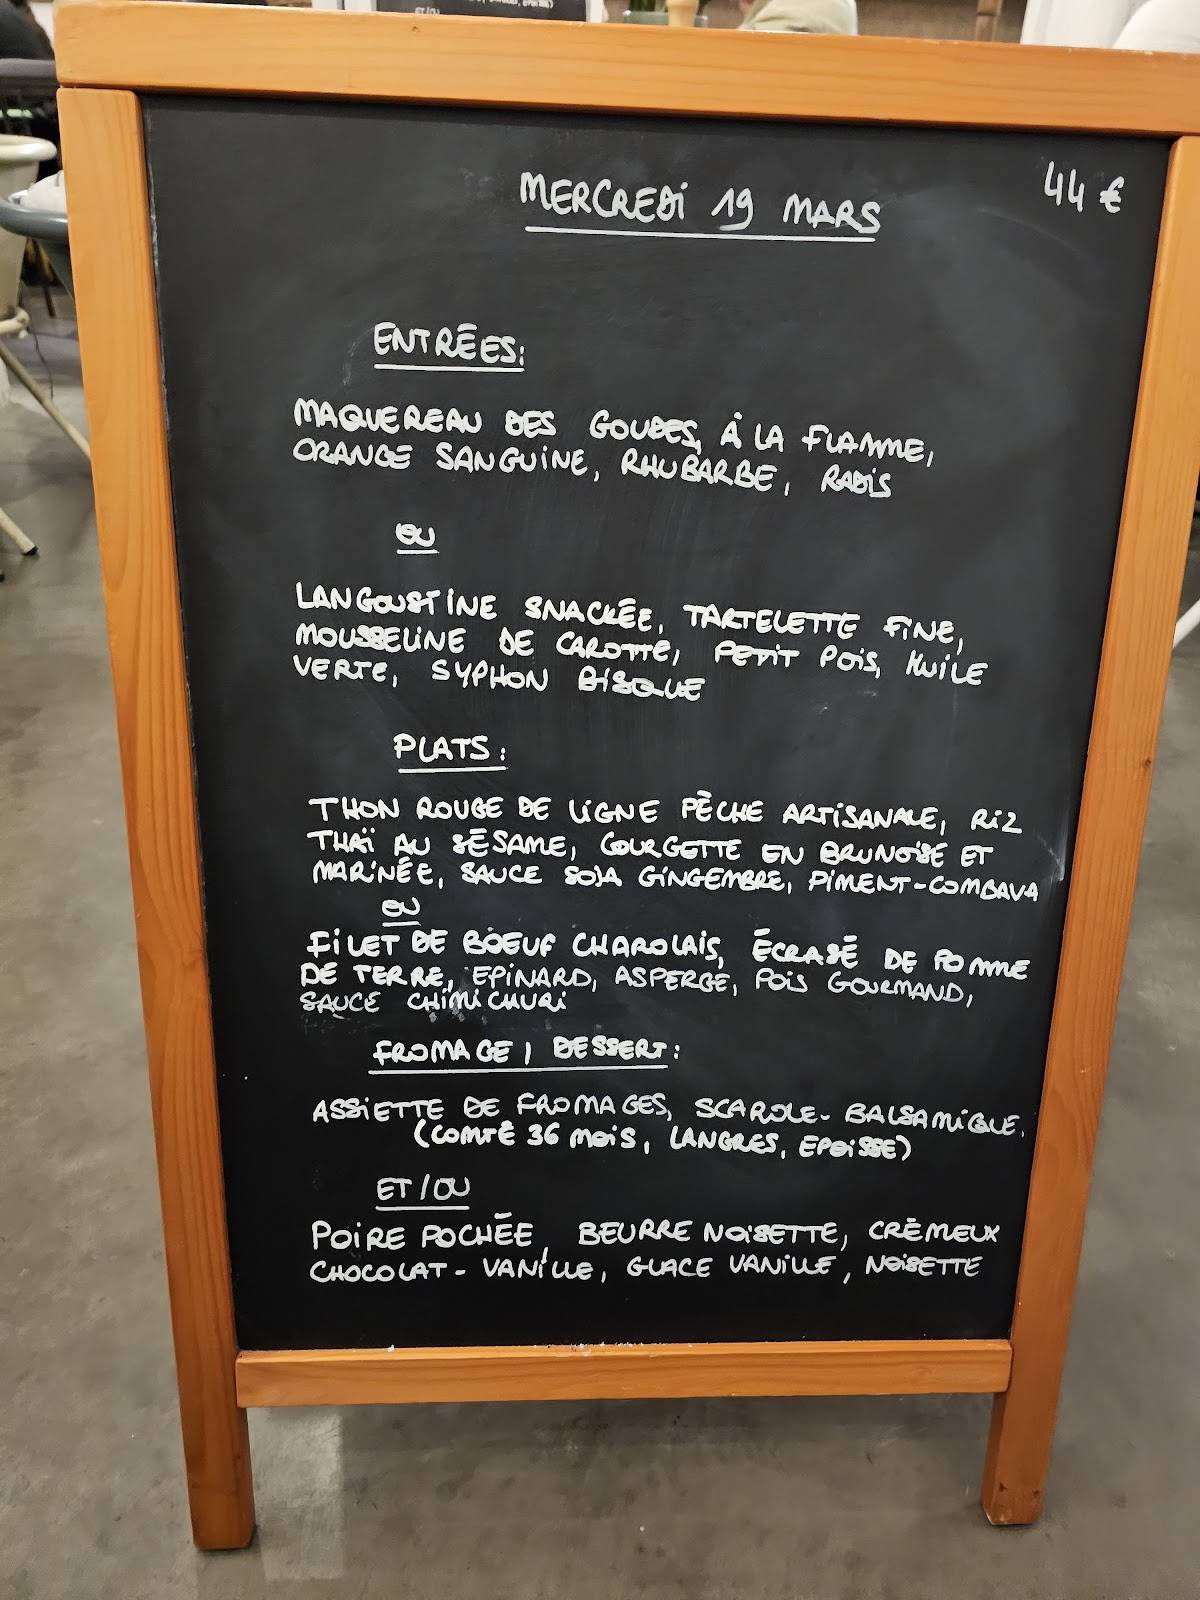 MERCREDI 19 MARS
44 €
ENTRÉES:
MAQUEREAU DES GOUDES, À LA FLAMME,
ORANGE SANGUINE, RHUBARBE, RADIS
OU
LANGOUSTINE SNACKÉE, TARTELETTE FINE,
MOUSSELINE DE CAROTTE, PETIT POIS, HUILE
VERTE, SYPHON BISQUE
PLATS:
THON ROUGE DE LIGNE PÊCHE ARTISANALE, RIZ
THAÏ AU SÉSAME, COURGETTE EN BRUNOISE ET
MARINÉE, SAUCE SOJA GINGEMBRE, PIMENT-COMBAVA
OU
FILET DE BOEUF CHAROLAIS, ÉCRASÉ DE POMME
DE TERRE, EPINARD, ASPERGE, POIS GOURMAND,
SAUCE CHIMICHURI
FROMAGE, DESSERT:
ASSIETTE DE FROMAGES, SCAROLE-BALSAMIQUE.
(COMTÉ 36 MOIS, LANGRES, EPOISSE)
ET/OU
POIRE POCHÉE, BEURRE NOISETTE, CRÉMEUX
CHOCOLAT-VANILLE, GLACE VANILLE, NOISETTE